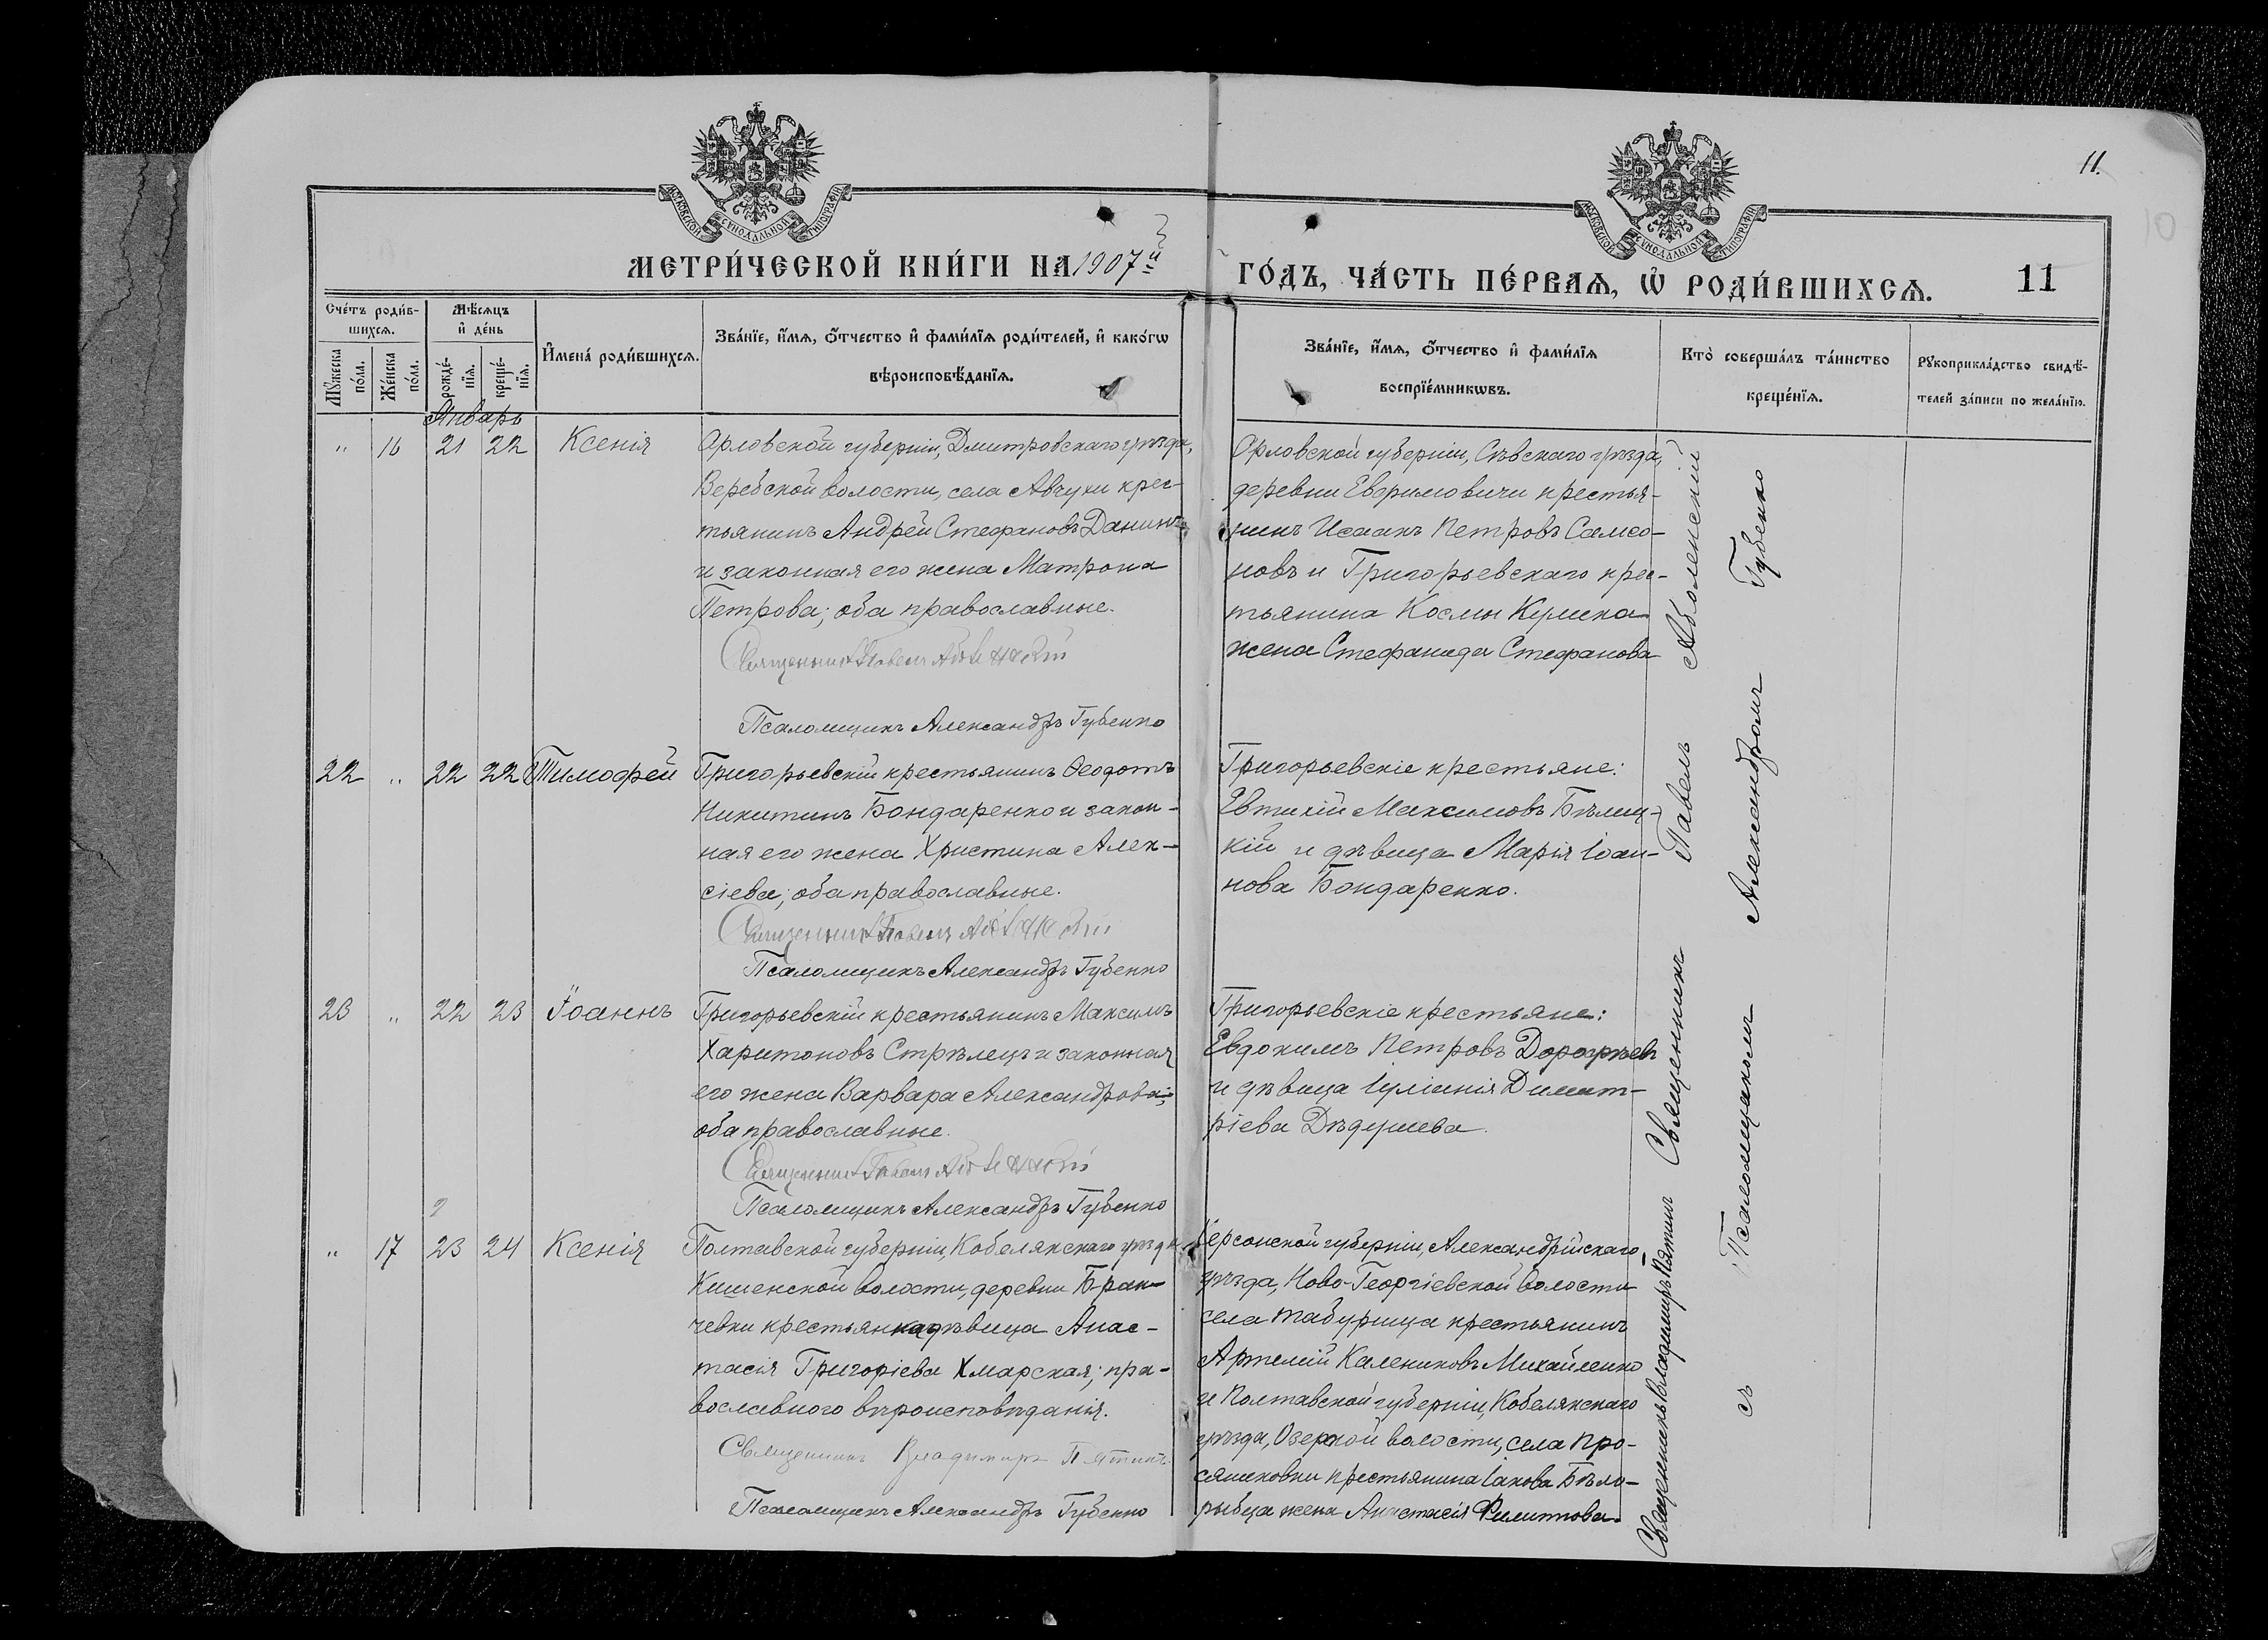 11.
10
МОСКОВСКОЙ СѴНОДАЛЬНОЙ ТИПОГРАФІИ
МОСКОВСКОЙ СѴНОДАЛЬНОЙ ТИПОГРАФІИ
МЕТРИ́ЧЕСКОЙ КНИ́ГИ НА 1907й
ГО́ДЪ, ЧА́СТЬ ПЕ́РВАѦ, Ѽ РОДИ́ВШИХСѦ.
11
Сче́тъ роди́в-
шихсѧ.
Мꙋ́жеска
по́ла.
Же́нска
по́ла.
Мѣ́сѧцъ
и҆ де́нь
рожде́-
нїѧ.
креще́-
нїѧ.
И҆мена̀ роди́вшихсѧ.
Зва́нїе, и҆́мѧ, ѻ҆́тчество и҆ фами́лїѧ роди́телей, и҆ како́гѡ
вѣроисповѣ́данїѧ.
Зва́нїе, и҆́мѧ, ѻ҆́тчество и҆ фами́лїѧ
воспрїе́мникѡвъ.
Кто̀ соверша́лъ та́инство
креще́нїѧ.
Рꙋкоприкла́дство свидѣ́-
телей за́писи по жела́нїю.
Январь
" 16 21 22 Ксенія
Орловской губерніи, Дмитровскаго уѣзда,
Веребской волости, села Авчухи крес-
тьянинъ Андрей Стефановъ Данинъ
и законная его жена Матрона
Петрова; оба православные.
Священникъ Павелъ
Псаломщикъ Александръ Губенко
Орловской губерніи, Сѣвскаго уѣзда,
деревни Евфимовичи крестья-
нинъ Исаакъ Петровъ Самсо-
новъ и Григорьевскаго крес-
тьянина Космы Кулика
жена Стефанида Стефанова
22 " 22 22 Тимофей
Григорьевскій крестьянинъ Ѳеодотъ
Никитинъ Бондаренко и закон-
ная его жена Христина Алек-
сіева; оба православные.
Священникъ Павелъ
Псаломщикъ Александръ Губенко
Григорьевскіе крестьяне:
Евтихій Максимовъ Бѣлиц-
кій и дѣвица Марія Іоан-
нова Бондаренко.
23 " 22 23 Іоаннъ
Григорьевскій крестьянинъ Максимъ
Харитоновъ Стрѣлецъ и законная
его жена Варвара Александрова;
оба православные.
Священникъ Павелъ
Псаломщикъ Александръ Губенко
Григорьевскіе крестьяне:
Евдокимъ Петровъ
и дѣвица Іуліанія Димит-
ріева Дѣдушева.
" 17 23 24 Ксенія
Полтавской губерніи, Кобелякскаго уѣзда
Кишенской волости, деревни Бран-
чевки крестьянка дѣвица Анас-
тасія Григоріева Хмарская; пра-
вославного вѣроисповѣданія.
Священникъ Владимиръ Пятинъ
Псаломщикъ Александръ Губенко
Херсонской губерніи, Александрійскаго
уѣзда, Ново-Георгіевской волости
села Табурища крестьянинъ
Артемій Калениковъ Михайленко
и Полтавской губерніи, Кобелякскаго
уѣзда, Озерной волости, села Про-
сяниковки крестьянина Іакова Бѣло-
рыбца жена Анастасія Филиппова.
Священникъ Владимиръ Пятинъ Священникъ Павелъ
съ Псаломщикомъ Александромъ Губенко